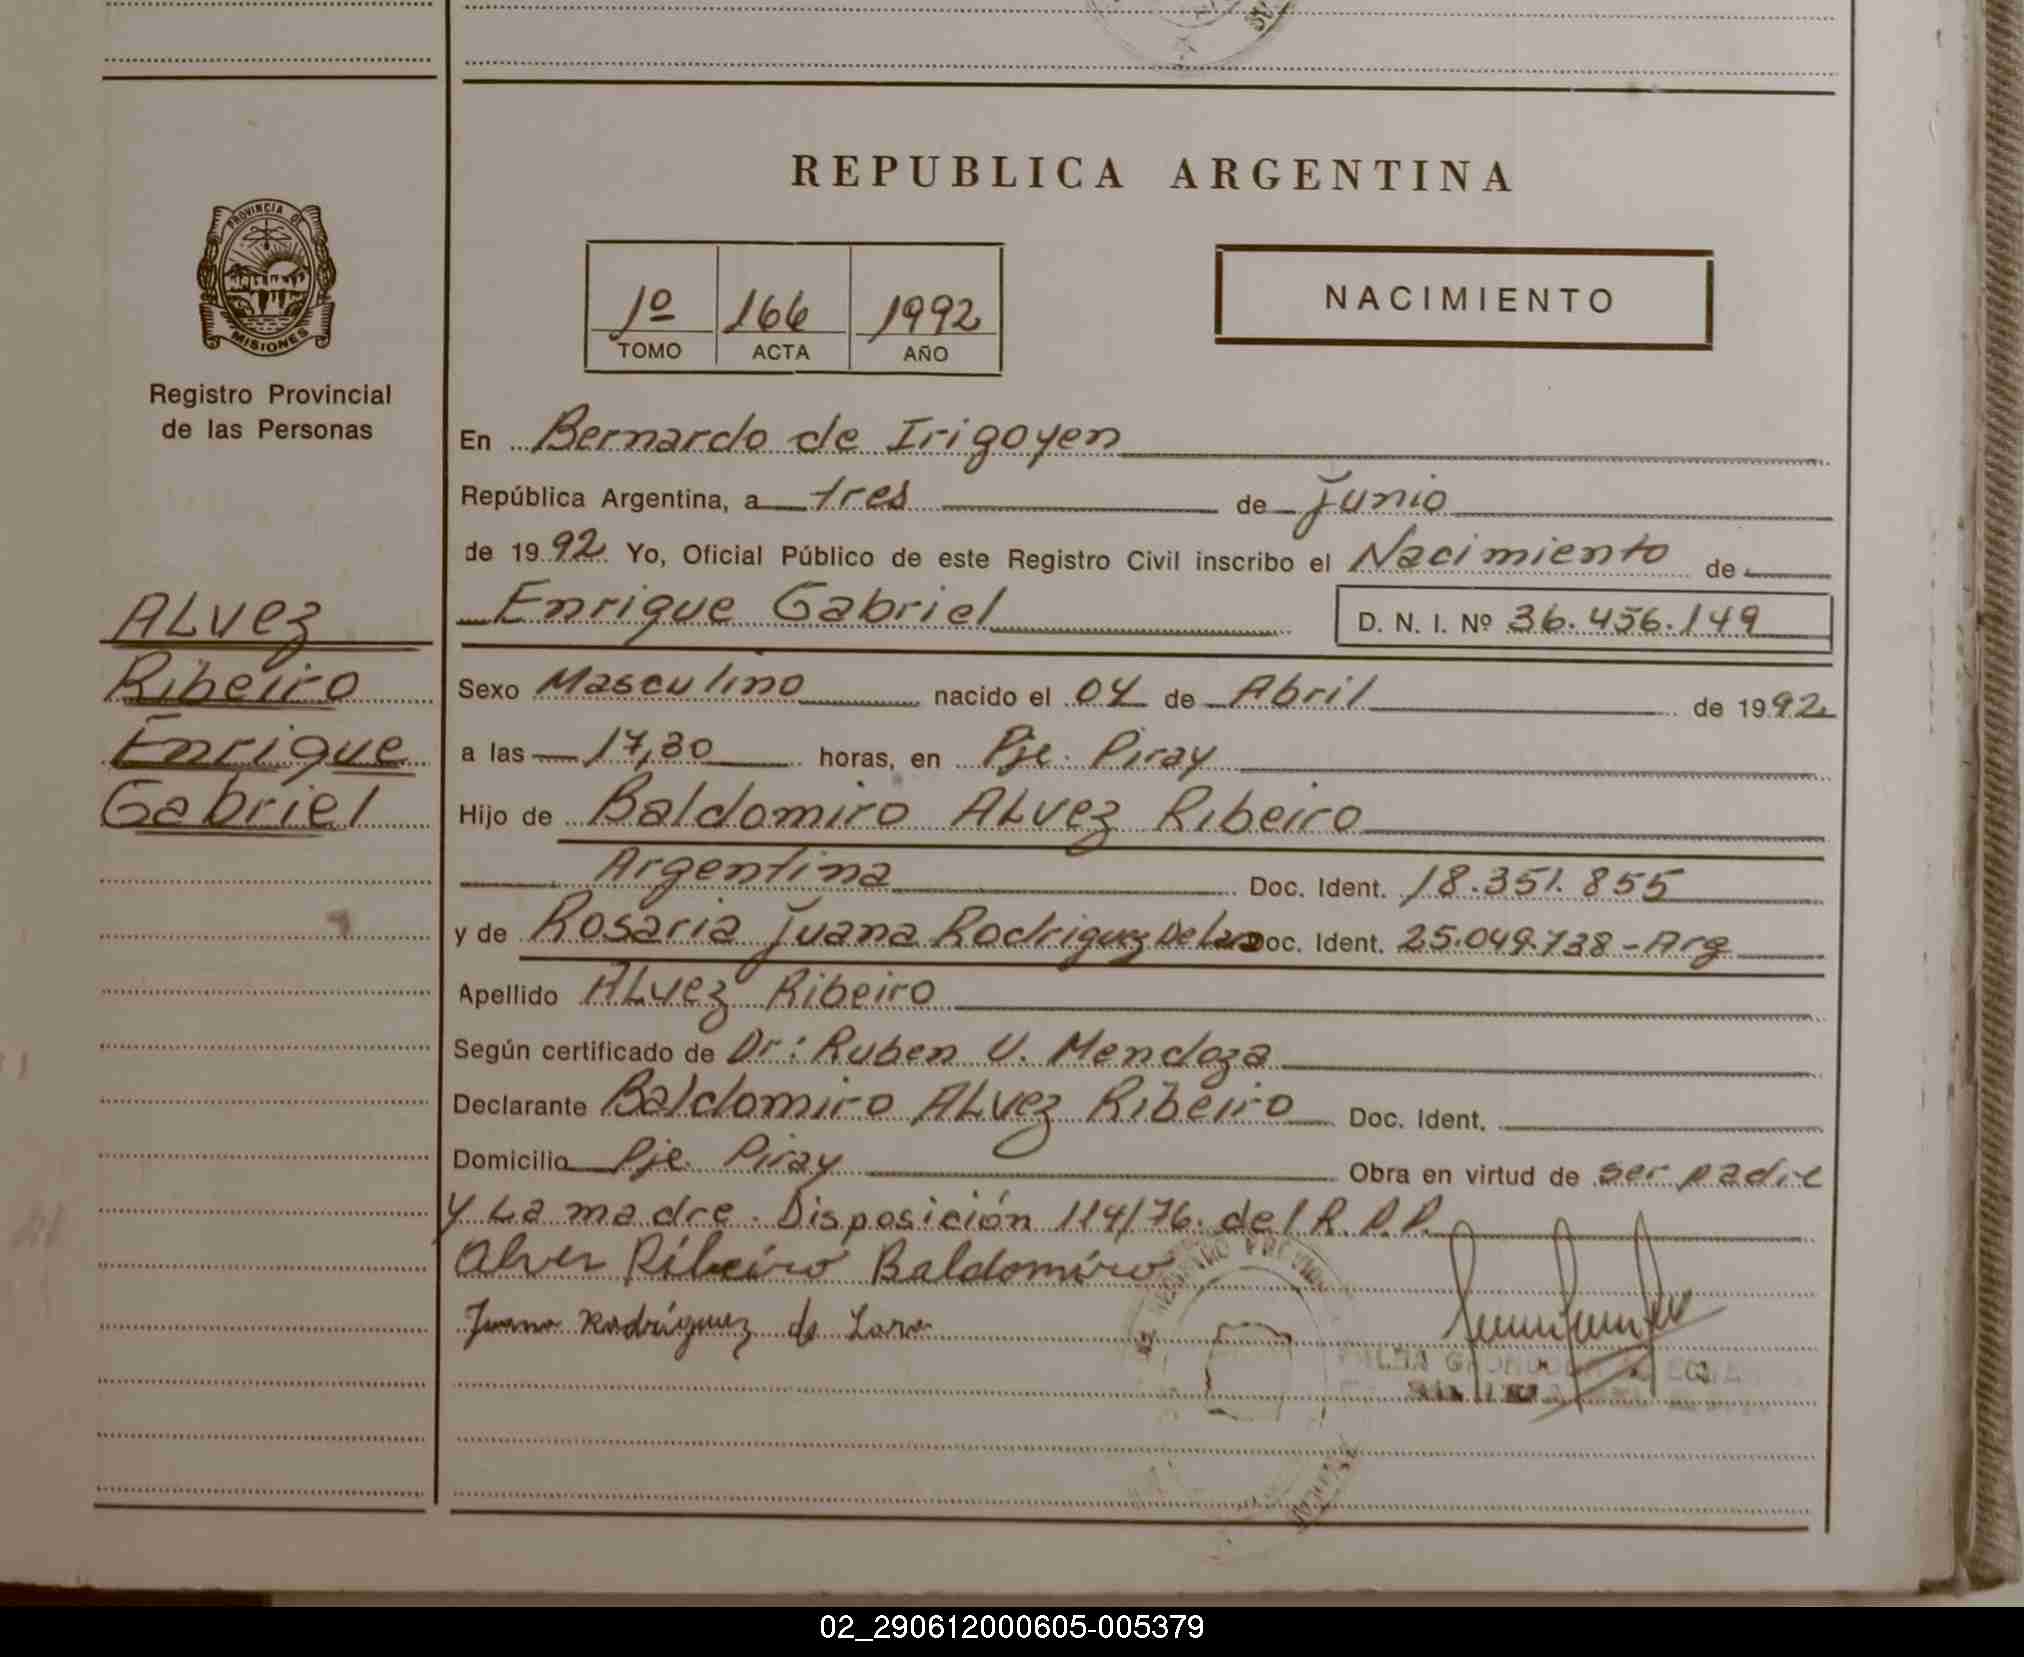 REPUBLICA ARGENTINA
PROVINCIA DE
MISIONES
Registro Provincial
de las Personas
1º 166 1992
TOMO ACTA AÑO
NACIMIENTO
ALvez
Ribeiro
Enrique
Gabriel
En Bernardo de Irigoyen
República Argentina, a tres de junio
de 1992 Yo, Oficial Público de este Registro Civil inscribo el Nacimiento de
Enrique Gabriel D. N. I. Nº 36.456.149
Sexo Masculino nacido el 04 de Abril de 1992
a las 17,30 horas, en Pje. Piray
Hijo de Baldomiro ALvez Ribeiro
Argentina Doc. Ident. 18.351.855
y de Rosaria Juana Rodriguez De Lara Doc. Ident. 25.049.738 - Arg
Apellido ALvez Ribeiro
Según certificado de Dr: Ruben V. Mendoza
Declarante Baldomiro ALvez Ribeiro Doc. Ident.
Domicilio Pje. Piray Obra en virtud de ser padre
y La madre. Disposición 114/76. del R.P.P.
Alves Ribeiro Baldomiro
Juana Rodríguez de Lara
02_290612000605-005379